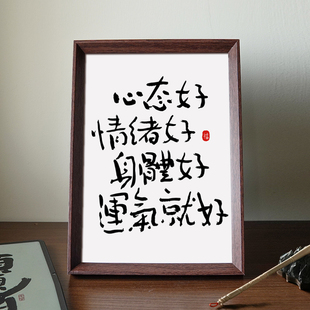 心态好
情绪好
身體好
運氣就好